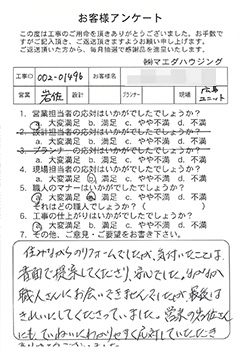 お客様アンケート
この度は工事のご用命を頂きありがとうございました。お手数で
すがご記入頂き、ご返送頂きますようお願い申し上げます。
ご返送頂いた方から、毎月抽選で感謝品を進呈いたします。
㈱マエダハウジング
工事ID 002-01496 お客様名
営業 岩佐 設計 プランナー 現場 広島ユニット
1. 営業担当者の応対はいかがでしたでしょうか?
a. 大変満足 b. 満足 c. やや不満 d. 不満
2. 設計担当者の応対はいかがでしたでしょうか?
a. 大変満足 b. 満足 c. やや不満 d. 不満
3. プランナーの応対はいかがでしたでしょうか?
a. 大変満足 b. 満足 c. やや不満 d. 不満
4. 現場担当者の応対はいかがでしたでしょうか?
a. 大変満足 b. 満足 c. やや不満 d. 不満
5. 職人のマナーはいかがでしたでしょうか?
a. 大変満足 b. 満足 c. やや不満 d. 不満
それはどの職人でしょうか( )
6. 工事の仕上がりはいかがでしたでしょうか?
a. 大変満足 b. 満足 c. やや不満 d. 不満
7. その他、ご意見・ご要望をお書き下さい。
住みながらのリフォームでしたが、気付いたことは
書面で提案してくださり、安心でした。なかなか
職人さんにお会いできませんでしたが最後は
きれいにしてくださっていました。営業の岩佐さん
にも、ていねいにわかりやすく応対していただき
ありがとうございました